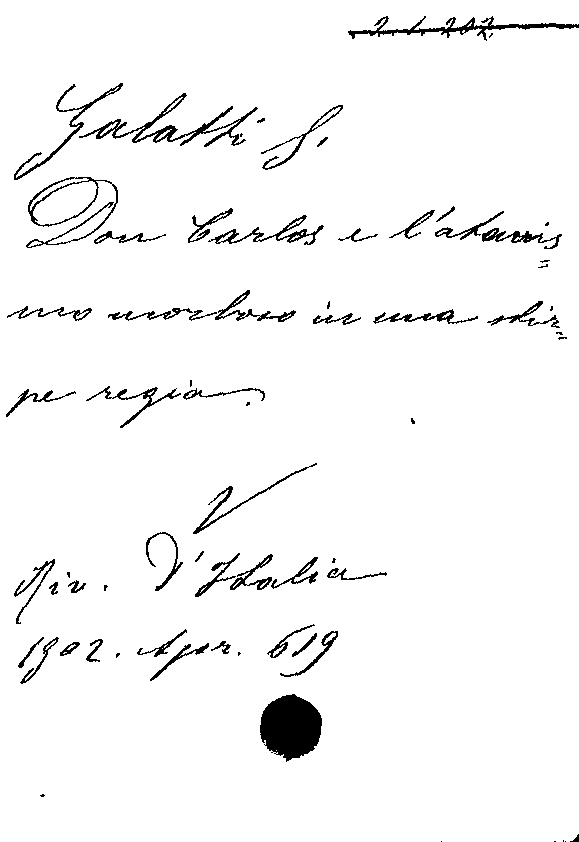 2. 1. 202.
Galatti G.
Don Carlos e l'atavis=
mo morboso in una stir=
pe regia.
Riv. d'Italia
1902. Apr. 619